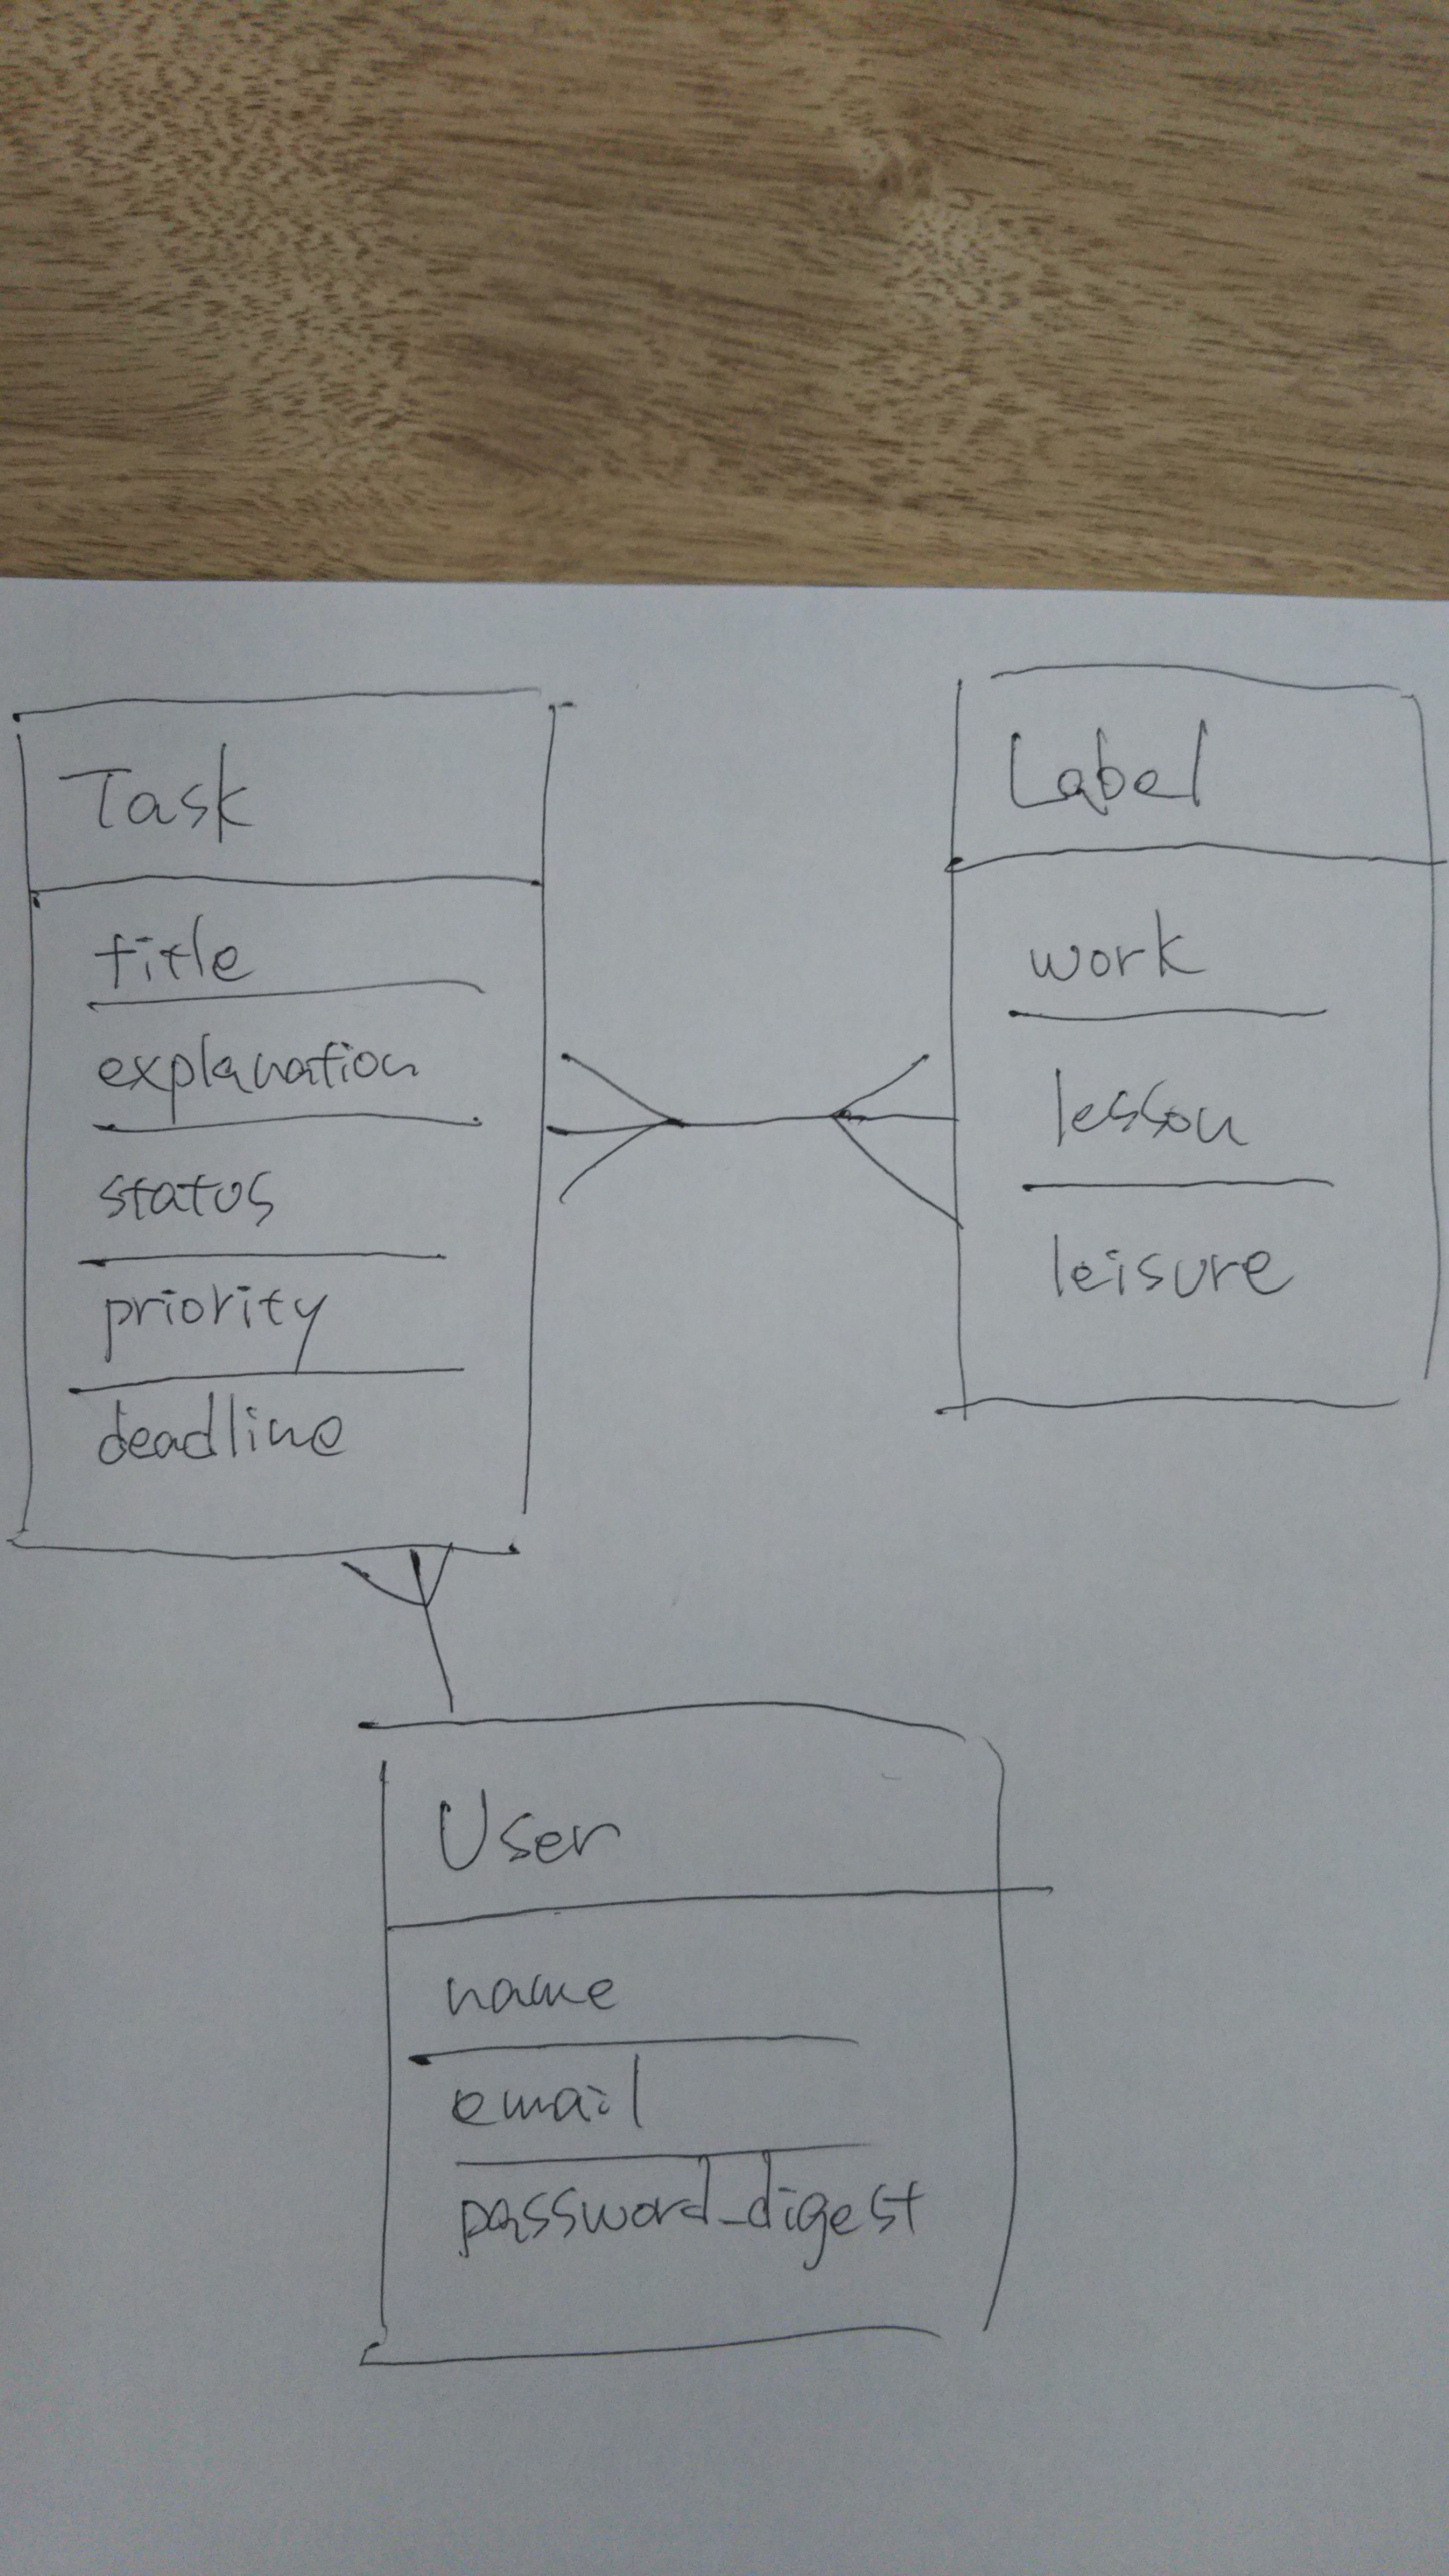 Task
title
explanation
status
priority
deadline
Label
work
lesson
leisure
User
name
email
password_digest